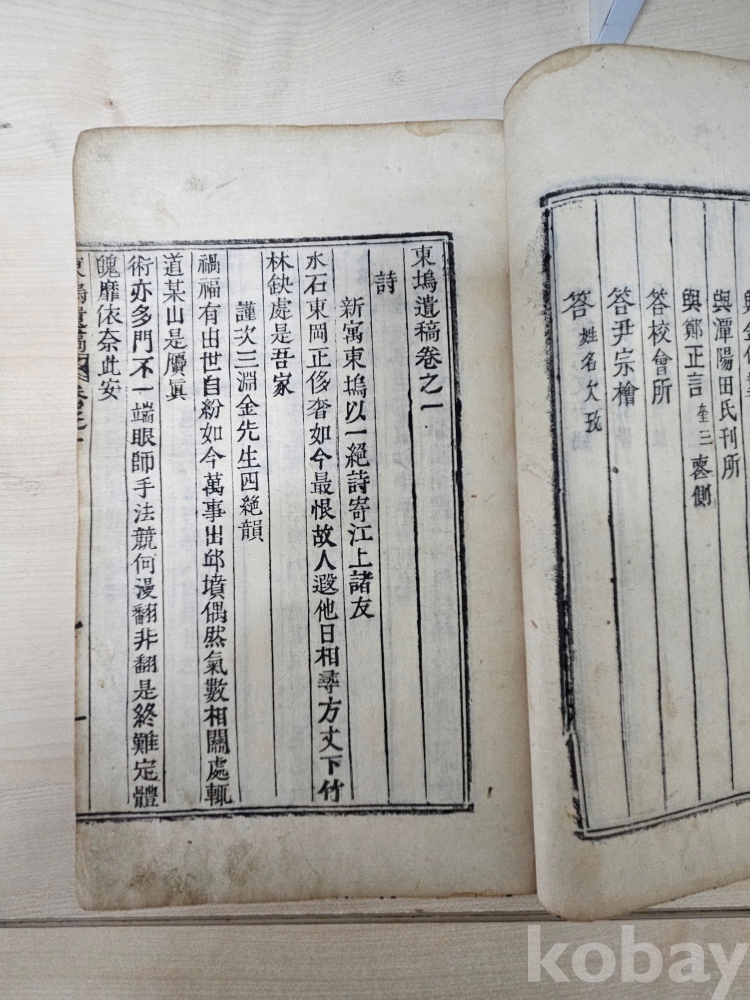 與潭陽田氏刊所
與鄭正言 奎三 䘮側
答校會所
答尹宗檜
答 姓名欠攷
東塢遺稿卷之一
詩
新寓東塢以一絕詩寄江上諸友
水石東岡正侈奢如今最恨故人遐他日相尋方丈下竹
林缺處是吾家
謹次三淵金先生四絕韻
禍福有出世自紛如今萬事出邱墳偶然氣數相關處輒
道某山是贋眞
術亦多門不一端眼師手法競何漫翻非翻是終難定體
魄靡依奈此安
東塢遺稿 卷之一 一
kobay